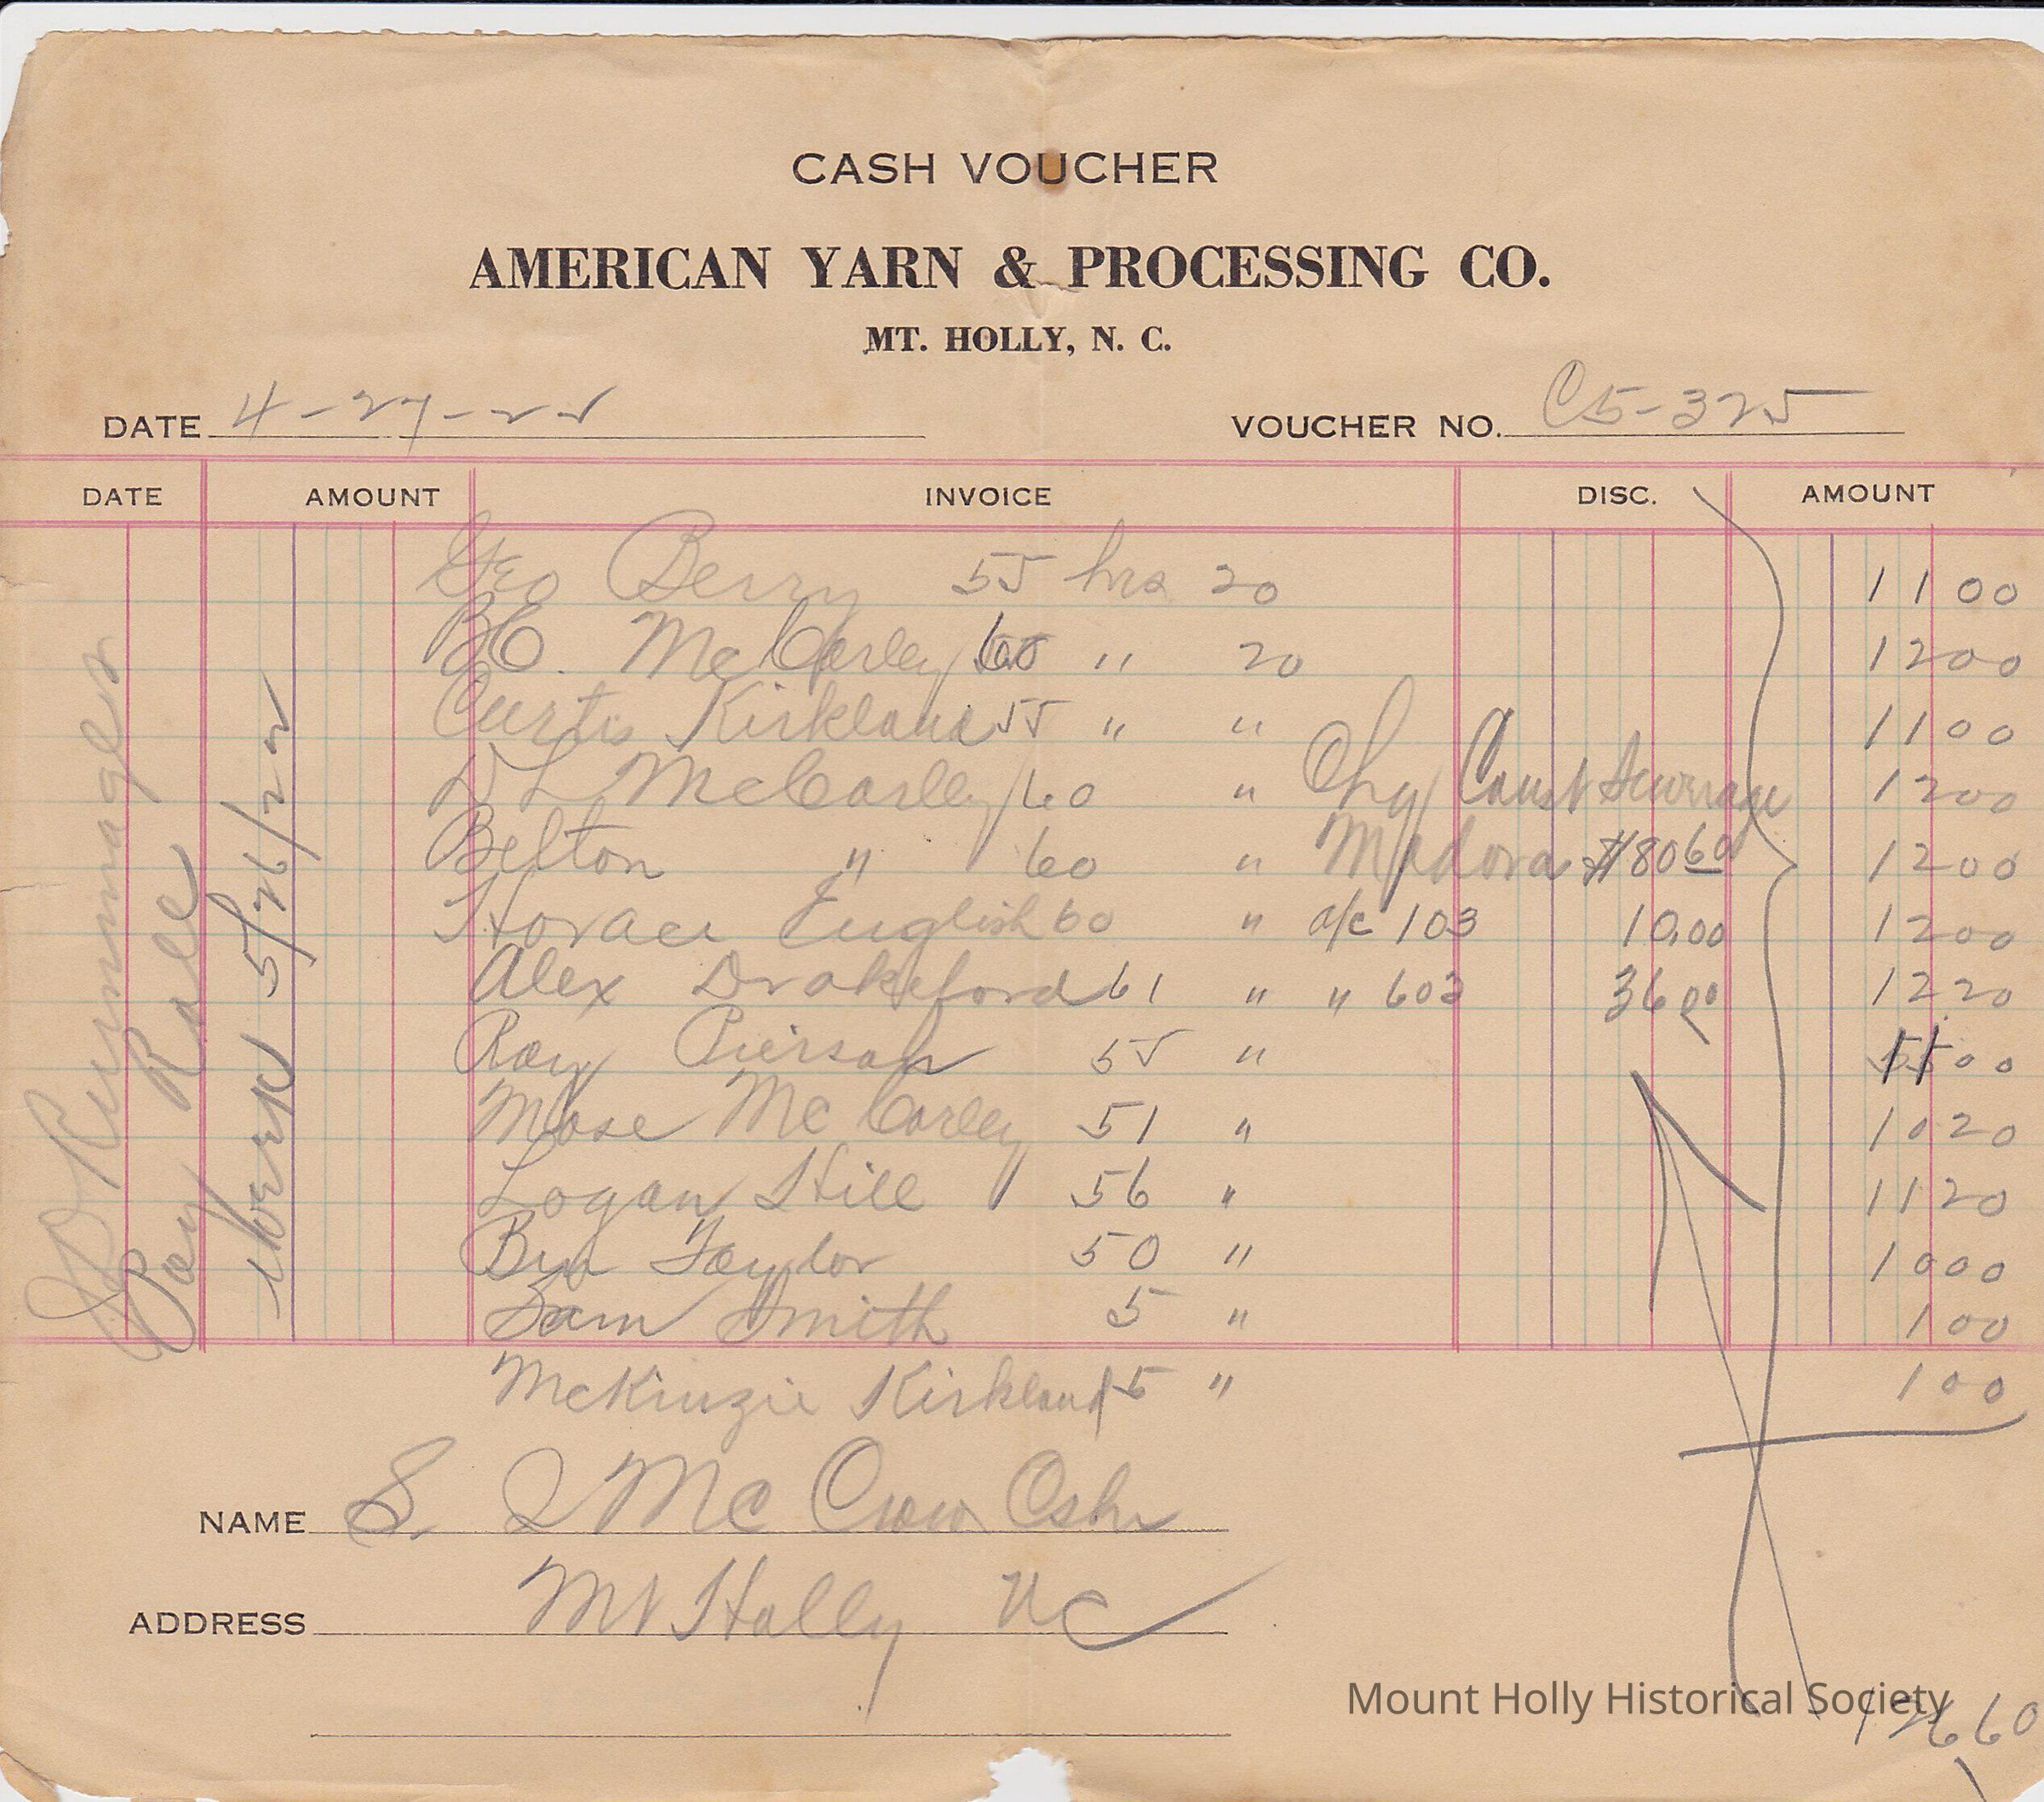 CASH VOUCHER
AMERICAN YARN & PROCESSING CO.
MT. HOLLY, N. C.
DATE 4-27-25 VOUCHER NO. C5-325
DATE AMOUNT INVOICE DISC. AMOUNT
Geo Berry 55 hrs 20 11 00
McCorley 60 " 20 12 00
Curtis Kirkland 55 " " 11 00
D L McCorley 60 " Chg Const Sewerage 12 00
Belton " 60 " Madora $80 60 12 00
Horace English 60 " a/c 103 10.00 12 00
Alex Drakeford 61 " " 603 36 00 12 20
Roy Pierson 55 " 11 00
Mose McCorley 51 " 10 20
Logan Hill 56 " 11 20
Ben Taylor 50 " 10 00
Sam Smith 5 " 1 00
McKinzie Kirkland 5 " 1 00
Rummages
Pay Roll
Week
NAME S. McCrow Cshr
ADDRESS Mt Holly NC
Mount Holly Historical Society
126 60